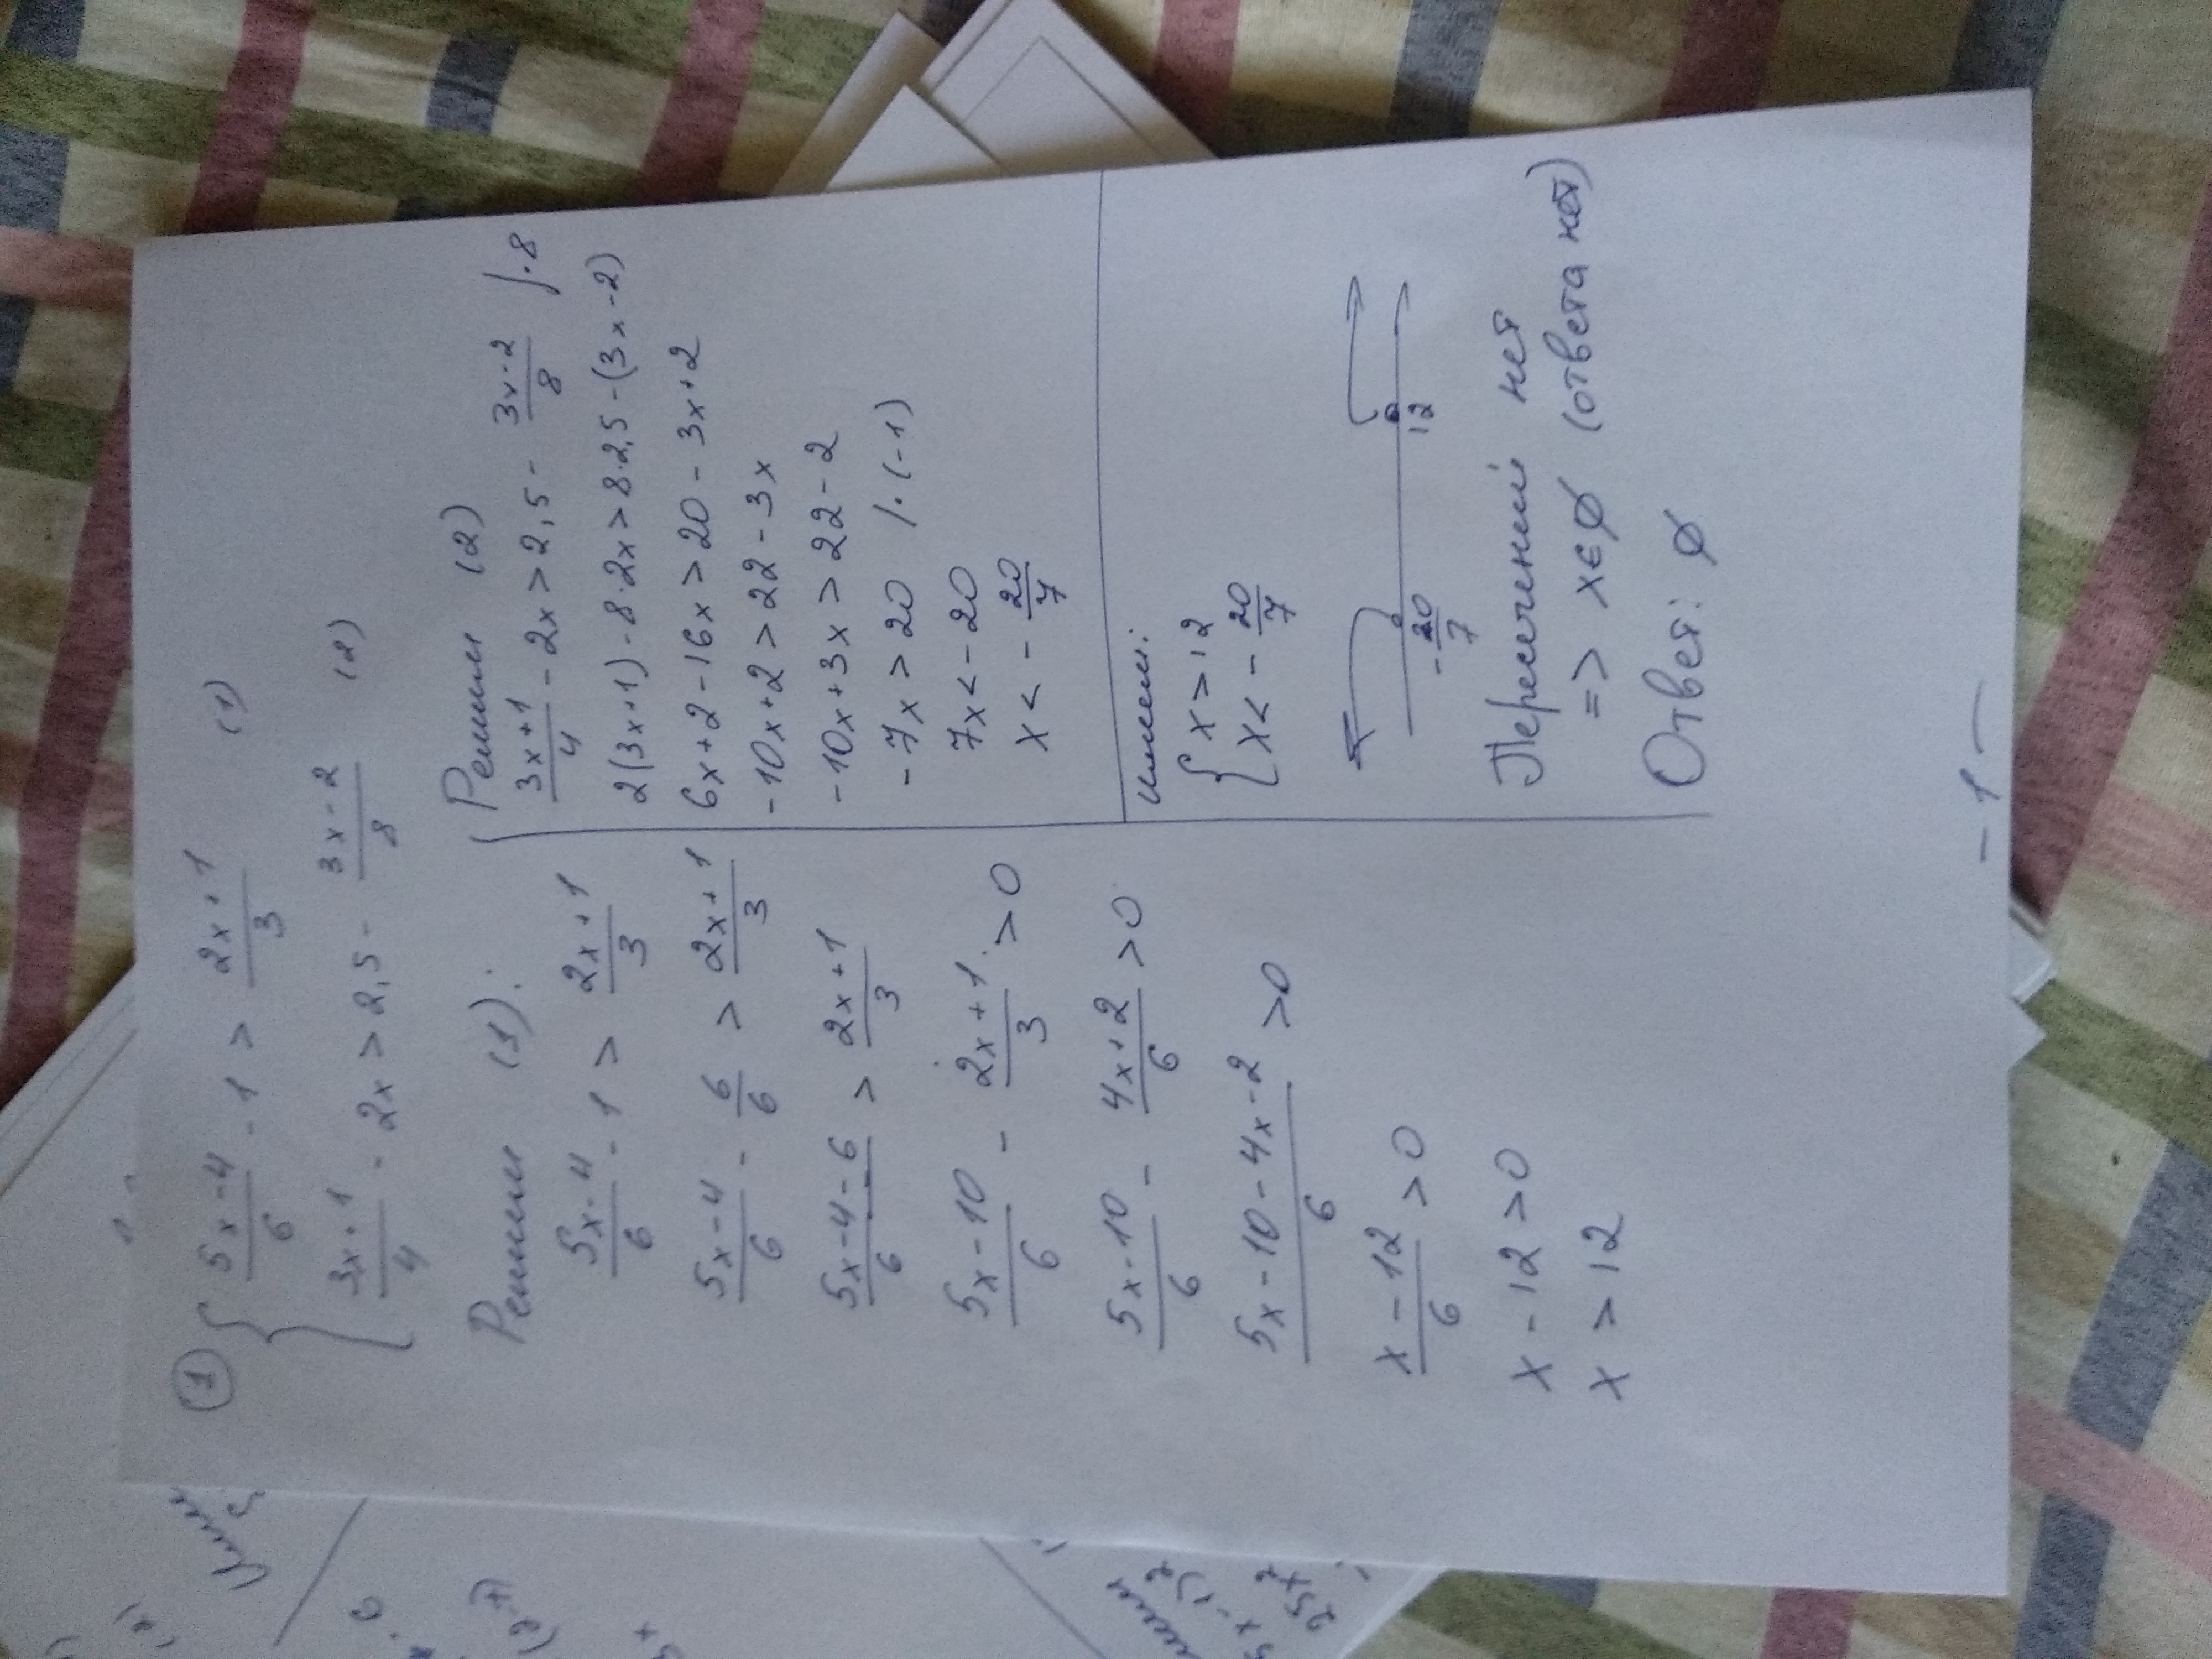 ① { (5x-4)/6 - 1 > (2x+1)/3 (1)
(3x+1)/4 - 2x > 2,5 - (3x-2)/8 (2)
Решим (1):
(5x-4)/6 - 1 > (2x+1)/3
(5x-4)/6 - 6/6 > (2x+1)/3
(5x-4-6)/6 > (2x+1)/3
(5x-10)/6 - (2x+1)/3 > 0
(5x-10)/6 - (4x+2)/6 > 0
(5x-10-4x-2)/6 > 0
(x-12)/6 > 0
x-12 > 0
x > 12
Решим (2)
(3x+1)/4 - 2x > 2,5 - (3x-2)/8 /·8
2(3x+1) - 8·2x > 8·2,5 - (3x-2)
6x+2-16x > 20 - 3x+2
-10x+2 > 22 - 3x
-10x+3x > 22-2
-7x > 20 /·(-1)
7x < -20
x < - 20/7
Имеем:
{ x > 12
x < - 20/7
- 20/7 12
Пересечений нет
=> x ∈ ∅ (ответа нет)
Ответ: ∅
- 1 -